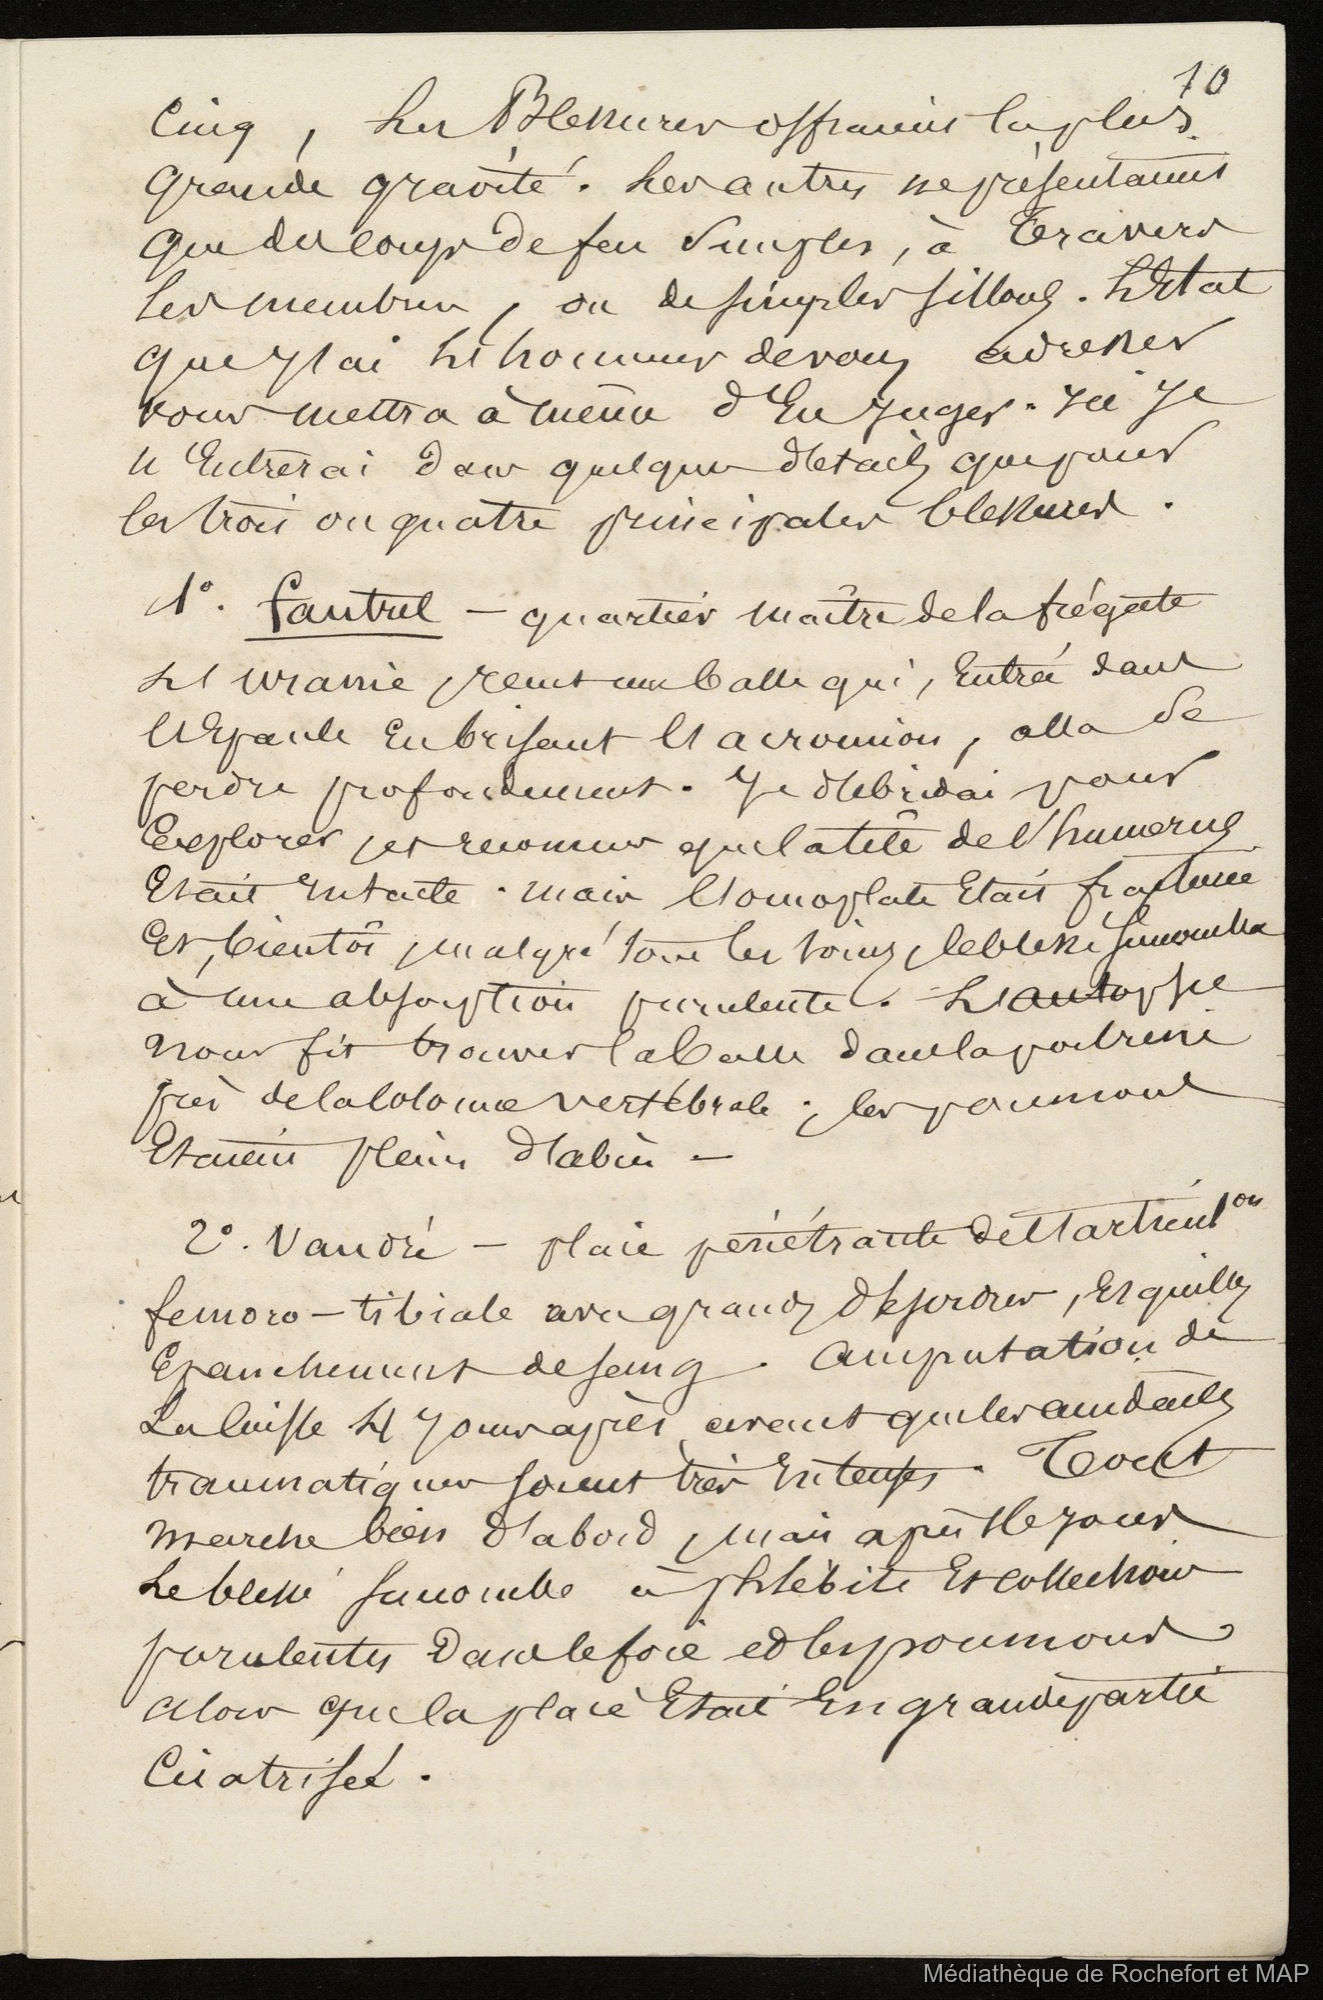 10
Cinq, les Blessures offraient la plus
grande gravité. Les autres ne présentaient
que des coups de feu simples, à travers
les membres, ou de simples sillons. L'Etat
que j'ai l'honneur de vous adresser
vous mettra à même d'En juger. Ici je
n'Entrerai dans quelques détails que pour
les trois ou quatre principales blessures.
1°. Fautrel — quartier maître de la frégate
L'Uranie reçut une balle qui, Entrée dans
l'Epaule En brisant l'acromion, alla se
perdre profondément. Je débridai pour
Explorer et reconnus que la tête de l'humerus
Etait Intacte. mais l'omoplate Etait fracturée
Et, bientôt, malgré tous les soins, le blessé succomba
à une absorption purulente. L'autopsie
nous fit trouver la balle dans la poitrine
près de la Colonne vertébrale; les poumons
Etaient pleins d'abcès —
2°. Vandré — plaie pénétrante de l'articul.on
femoro-tibiale avec grands désordres, Esquilles
Epanchement de sang. Amputation de
La Cuisse 4 jours après, avant que les accidents
traumatiques soient très Intenses. Tout
marche bien d'abord, mais après le jour
Le blessé succombe à phlébite Et collections
purulentes Dans le foie et les poumons
alors que la plaie Etait En grande partie
Cicatrisée.
Médiathèque de Rochefort et MAP